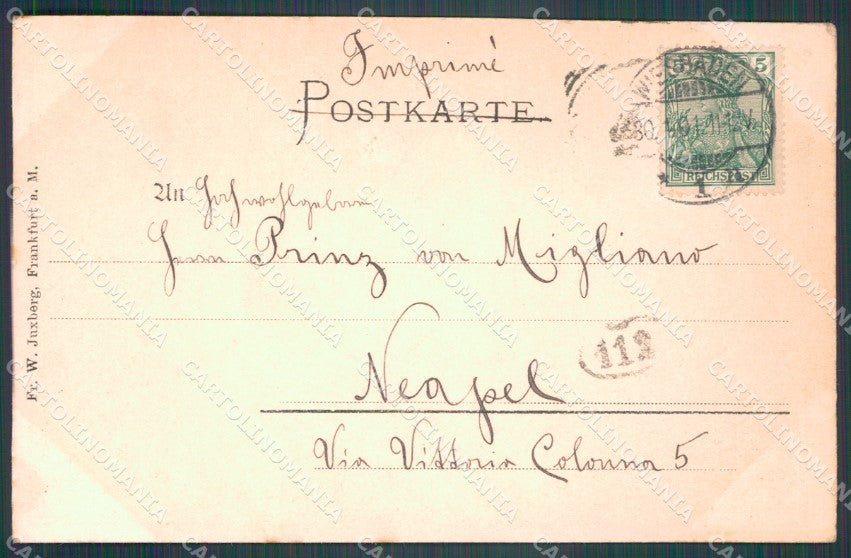 Imprimé
POSTKARTE.
WIESBADEN
1
5
REICHSPOST
An Hochwohlgeboren
Herrn Prinz von Migliano
112
Neapel
Via Vittoria Colonna 5
Fr. W. Juxberg, Frankfurt a. M.
CARTOLINOMANIA